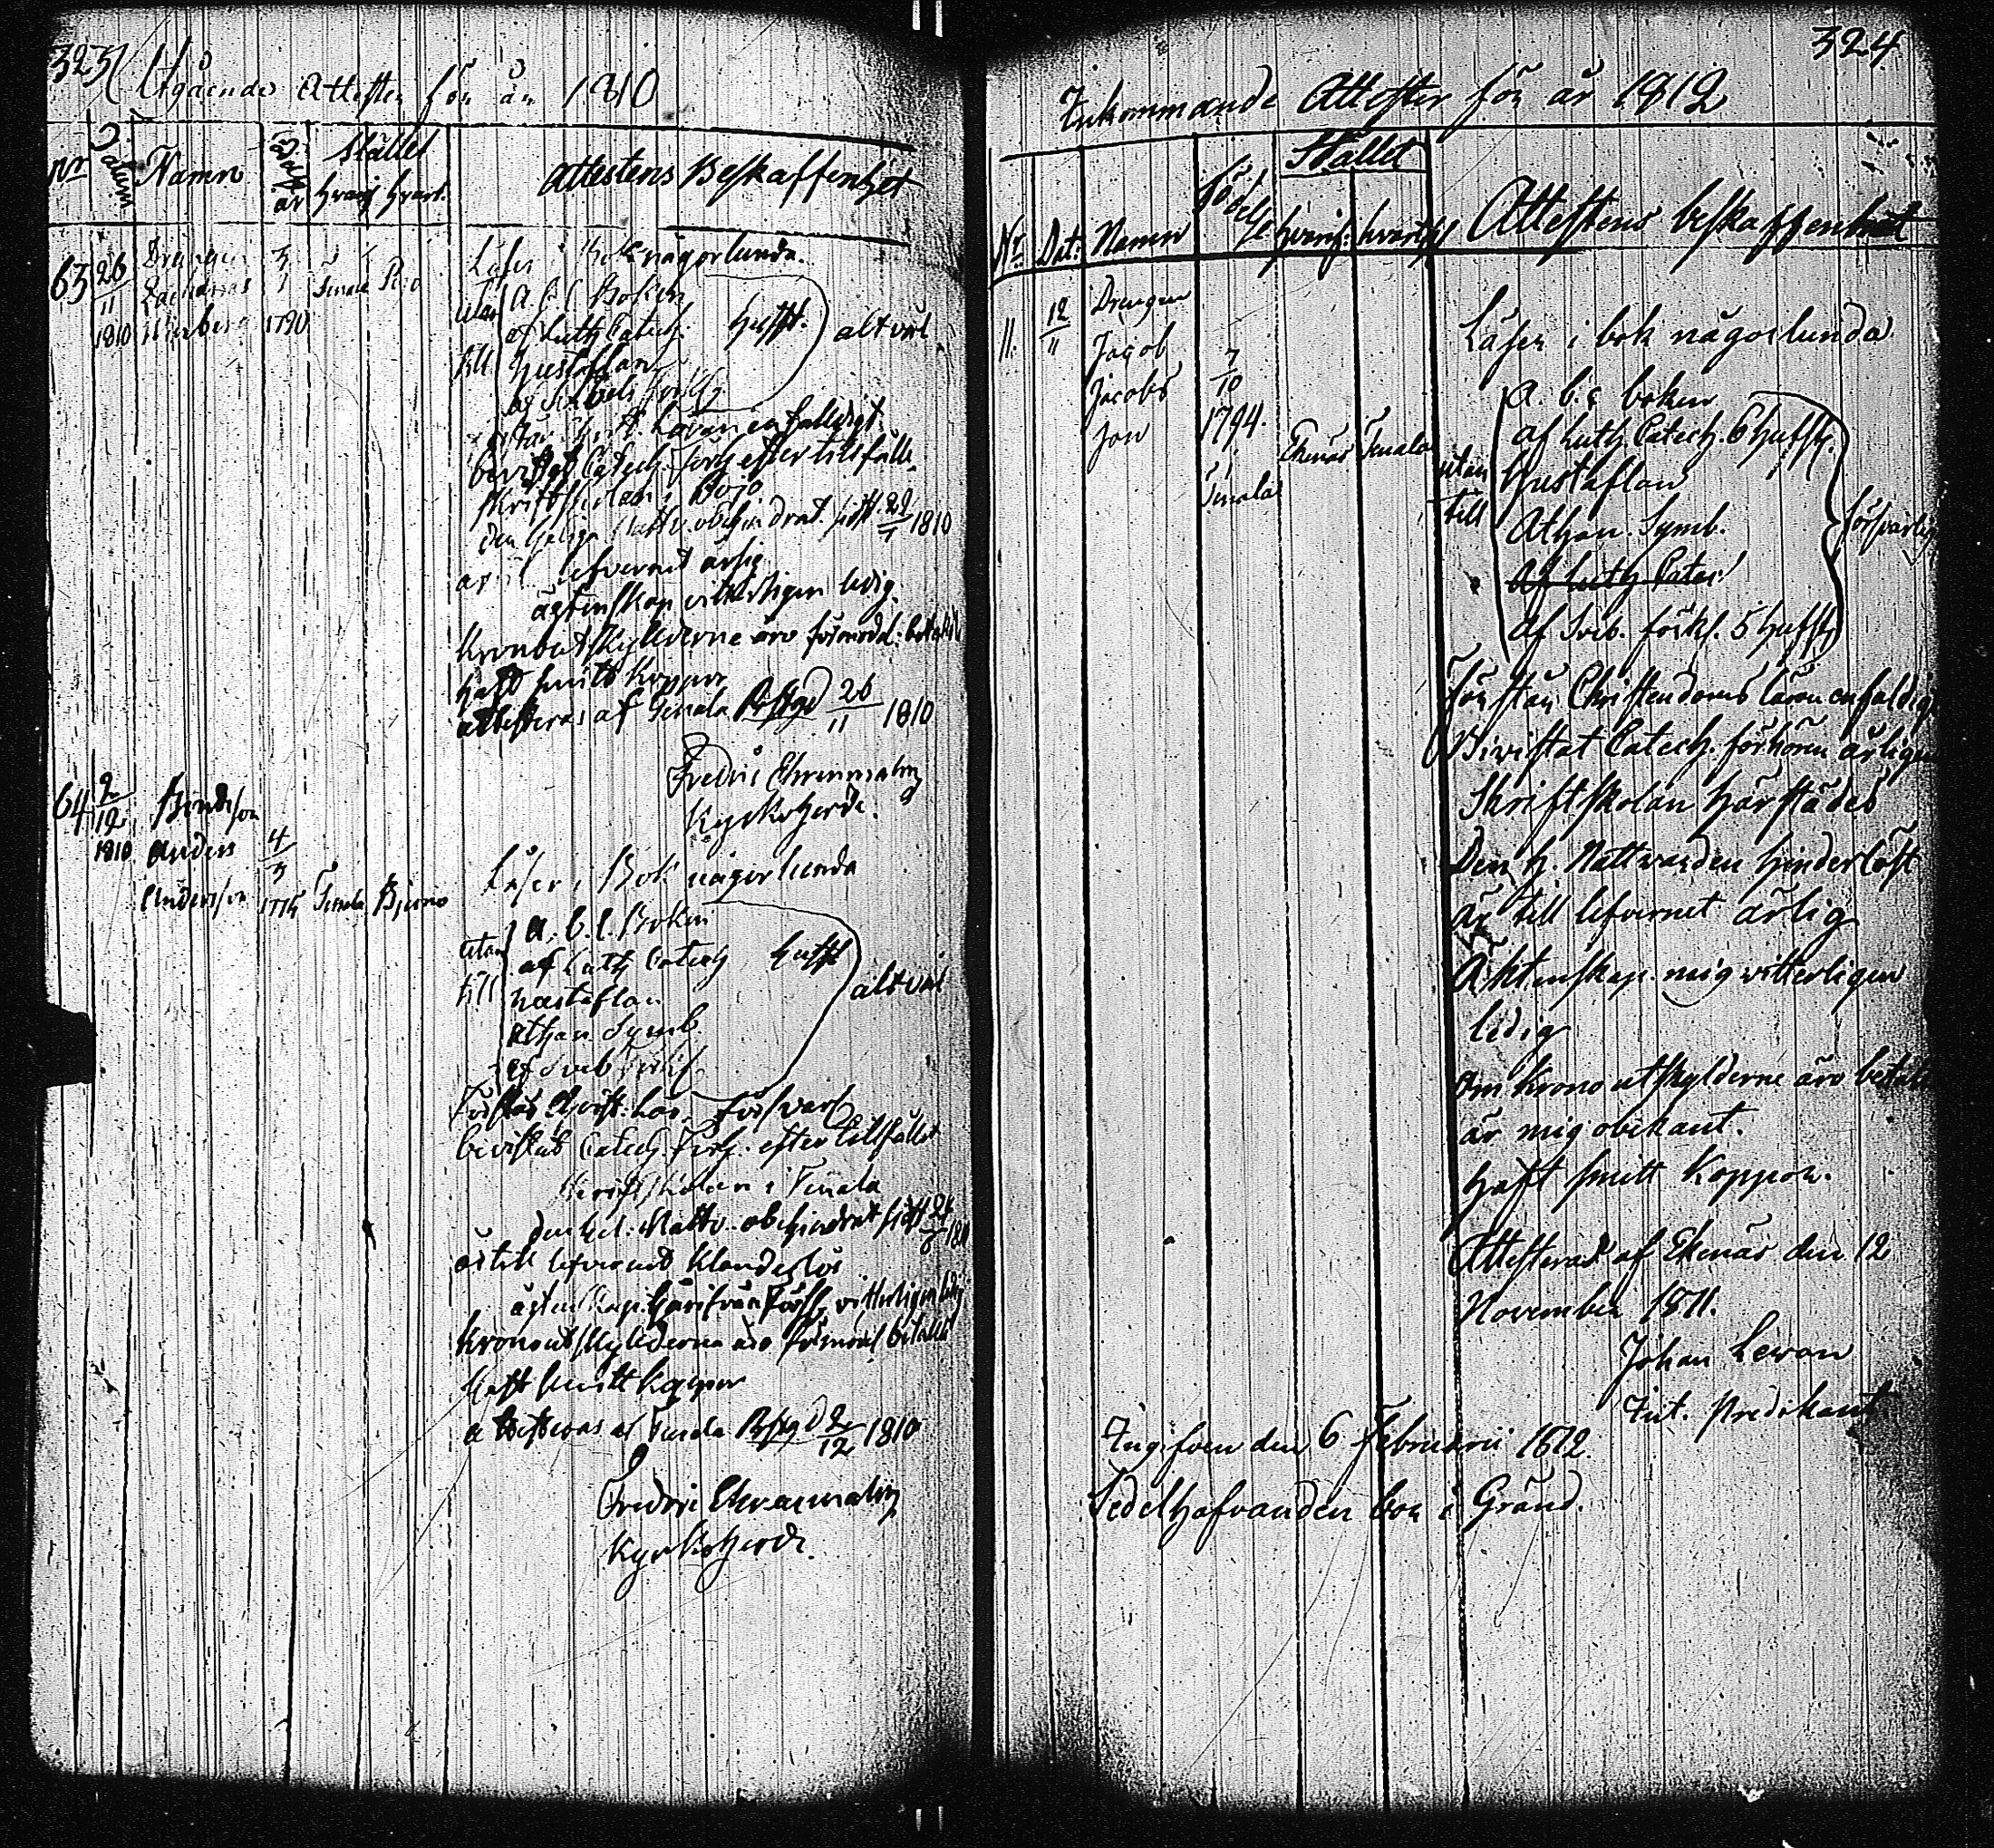 323
Utgående Attester för år 1810
Nr Datum Namn År Stället
hvarifr hvart.
Attestens Beskaffenhet
63 26/11 1810 Drängen
1790
Tenala Pojo
Läser i Bok någorlunda.
utan till
A. b. c Boken
af Luth Catech. Hufst.
Hustaflan
af Svebeli förkl.
alt väl
Läran enfalldigt
bevistat Catech. förh. efter tillfälle
skriftskolan i Pojo
den helige Nattv. obehindrat sist 1810
lefvernet ärlig
ägtenskap vitterligen ledig.
Kronoutskylderne äro förmodl: betalda
haft smitt Koppor
attesteras af Tenala Pstgd 26/11 1810
Fredric Ehrnmalm
Kyrkoherde.
64 2/12 1810 Bondeson
Anders
Andersson
4/3
Tenala Bjerno
Läser i Bok någorlunda
utan till
A. b. c. Boken
af Luth Catech Hufst
Hustaflan
Athan Symb.
af Sveb Förkl
alt väl
Förstår Christ: lär. försvarl
bevistat Catech. Förh. efter tillfället
Skriftskolan i Tenala
den hel. Nattv. obehindrat sist
är till lefvernet klanderlös
ägtenskap härifrån Förs. vitterligen ledig
Kronoutskylderna äro förmodl betalde
haft smitt koppor
attesteras af Tenala Pstgd 2/12 1810
Fredric Ehrnmalm
Kyrkoherde.
324
Inkommande Attester för år 1812
Nr Dat: Namn Födelse Stället
hvarif: hvarthel
Attestens beskaffenhet
11. 12/11 Drengen
Jacob
Jacobs
son
7/10
1794.
Tenala
Ekenäs Tenala
Läser i bok någorlunda
utan till
A. b. c boken
af Luth. Catech. 6 hufst.
Hustaflan
Athan. Symb.
af Luth Catec:
af Sveb. förkl. 5 hufst
försvarlig
Förstår Christendoms läran enfaldig
Bivistat Catech. förhören årligen
Skriftskolan härstädes
Den H. Nattwarden hinderlöst
är till lefvernet ärlig
Äktenskap. mig vitterligen
ledig
Om Krono utskylderne äro betalt
är mig obekant.
Haft smitt Koppor.
Attesterad af Ekenäs den 12
November 1811.
Johan Lewon
Int. predikant
Ingifven den 6 Februarii 1812.
Sedelhafvanden bor i Gränd.